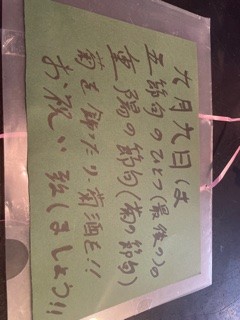 九月九日は
五節句のひとつ(最後の)の
重陽の節句(菊の節句)
菊を飾たり、菊酒を!!
お祝い致しましょう!!